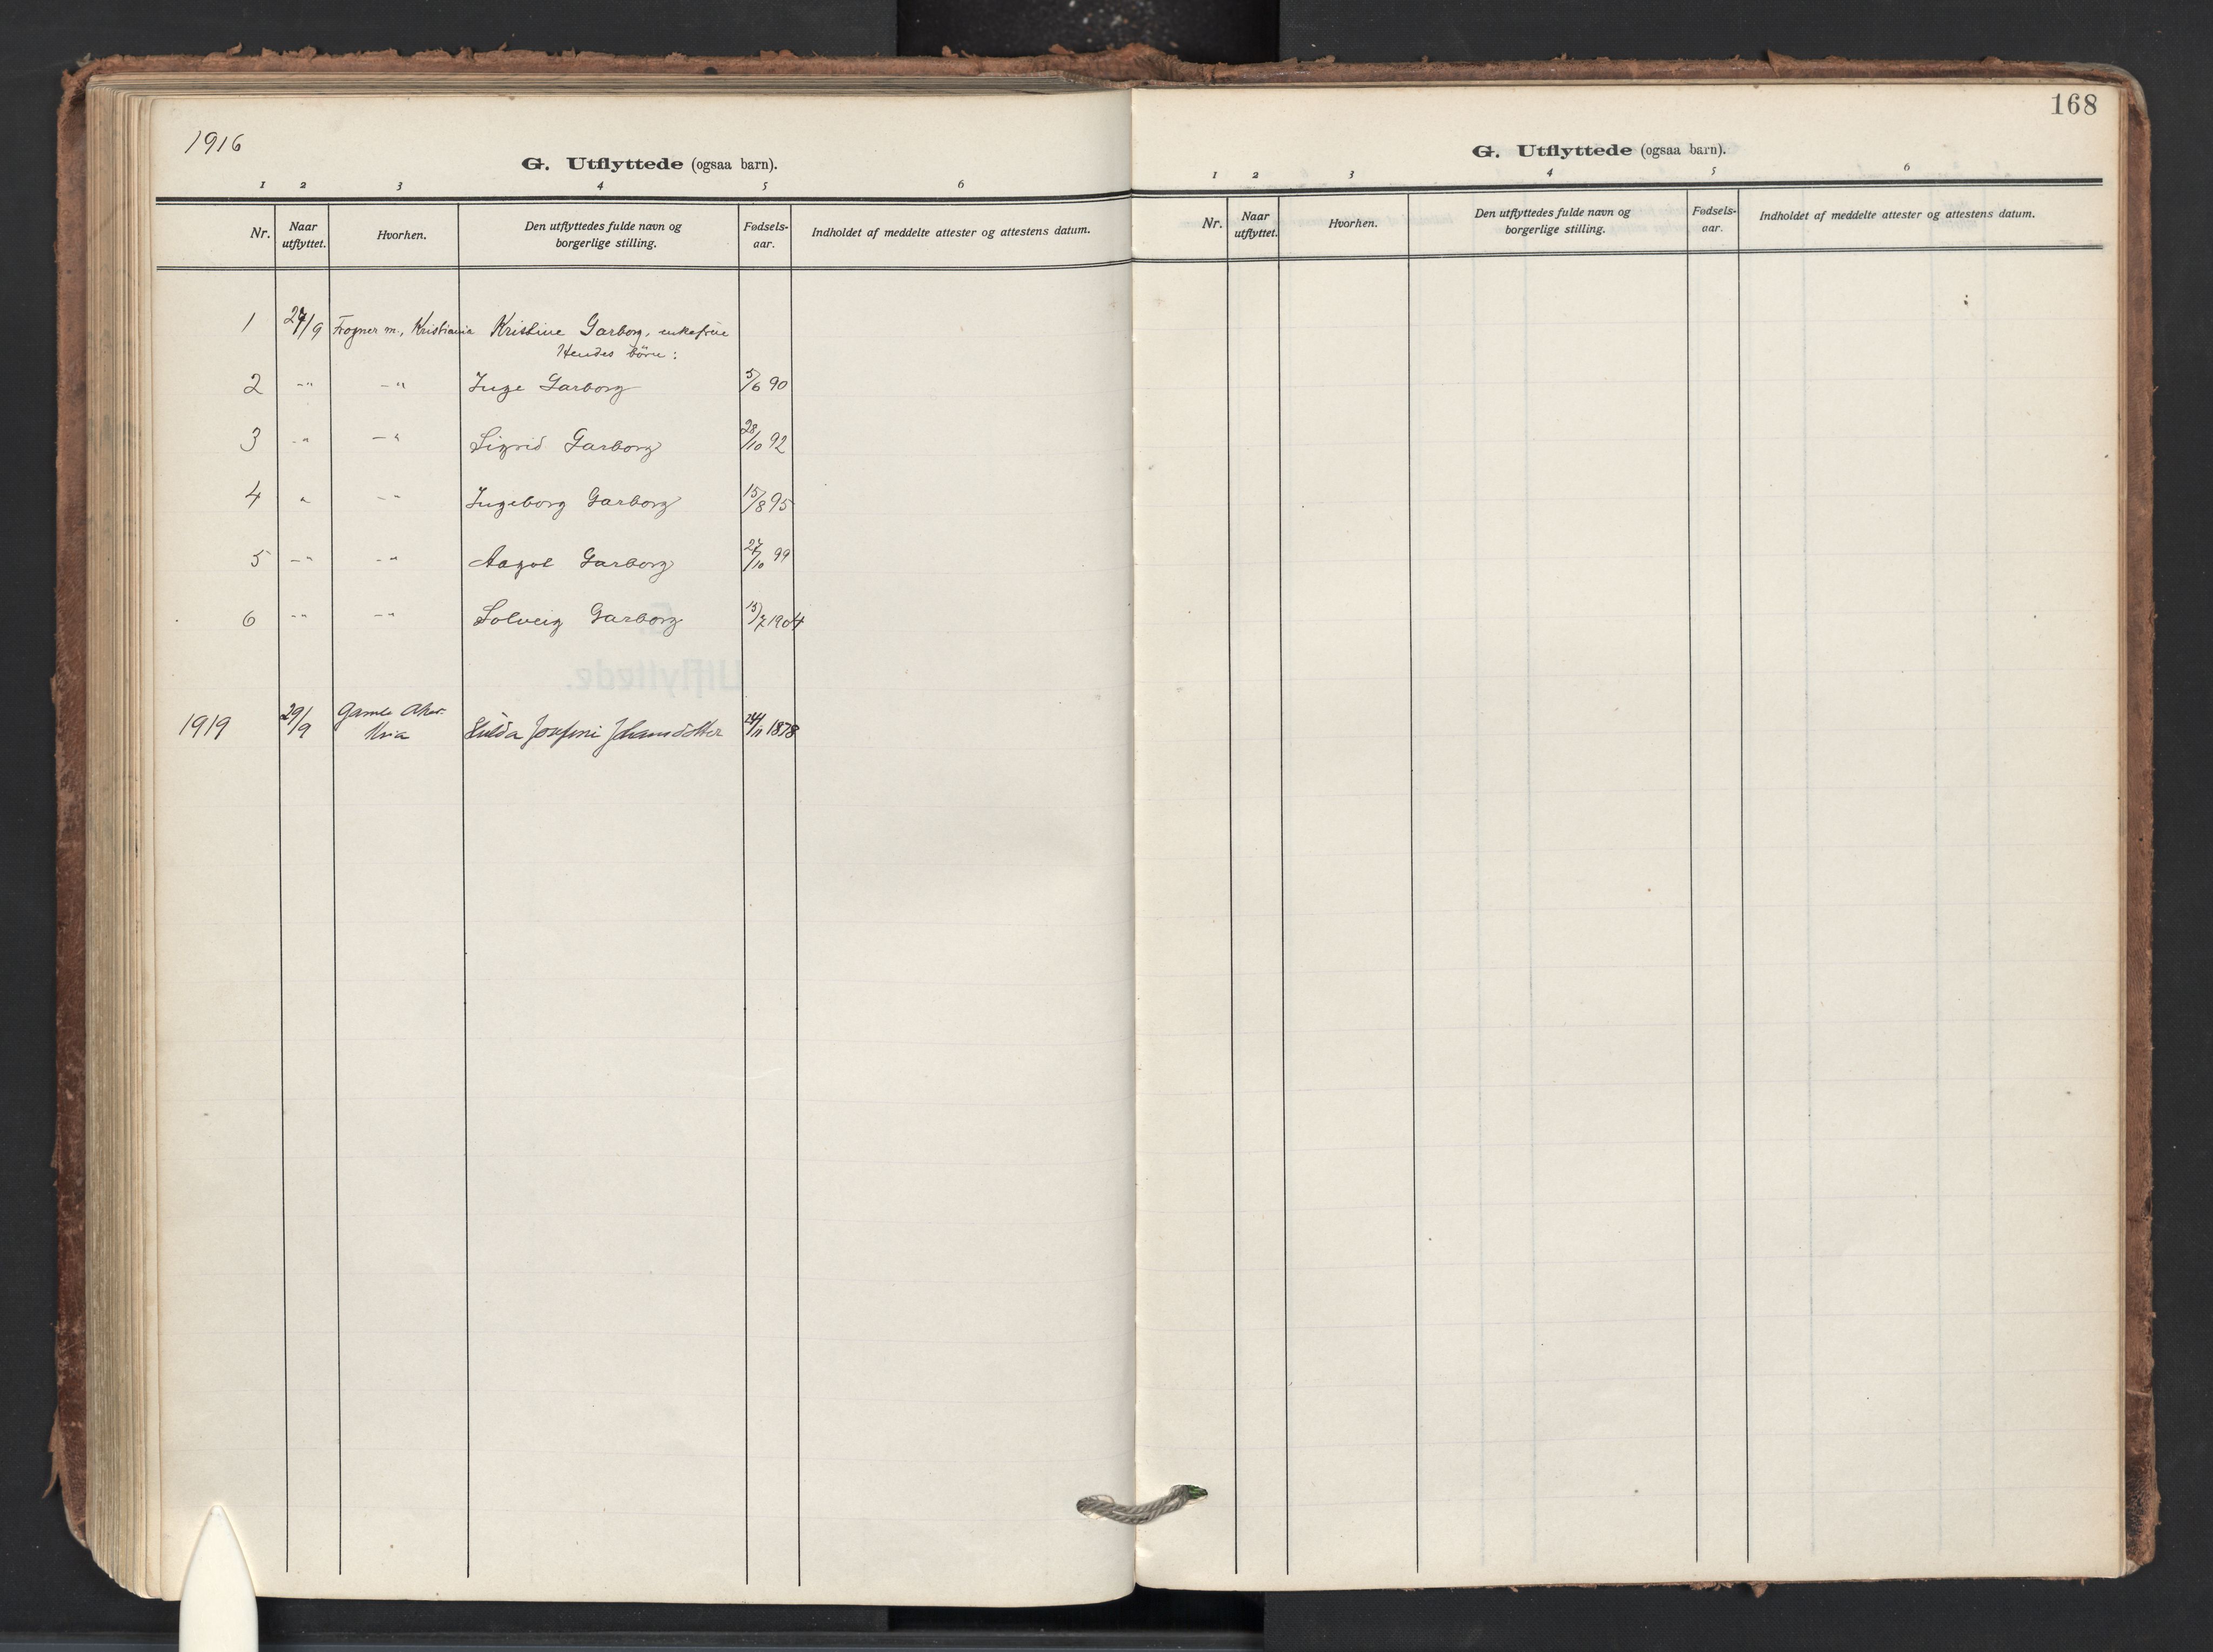 1916
G. Utflyttede (ogsaa barn).
1 2 3 4 5 6
Nr. Naar utflyttet. Hvorhen. Den utflyttedes fulde navn og borgerlige stilling. Fødsels-aar. Indholdet af meddelte attester og attestens datum.
1 27/9 Frogner m., Kristiania Kristine Garborg, enkefrue
Hendes börn:
2 -"- -"- Inge Garborg 5/6 90
3 -"- -"- Sigrid Garborg 28/10 92
4 " -"- Ingeborg Garborg 15/8 95
5 -"- -"- Aagot Garborg 27/10 99
6 -"- -"- Solveig Garborg 15/7 1904
1919 29/9 Gamle Aker Kria Josefine 24/11 1878
168
G. Utflyttede (ogsaa barn).
1 2 3 4 5 6
Nr. Naar utflyttet. Hvorhen. Den utflyttedes fulde navn og borgerlige stilling. Fødsels-aar. Indholdet af meddelte attester og attestens datum.